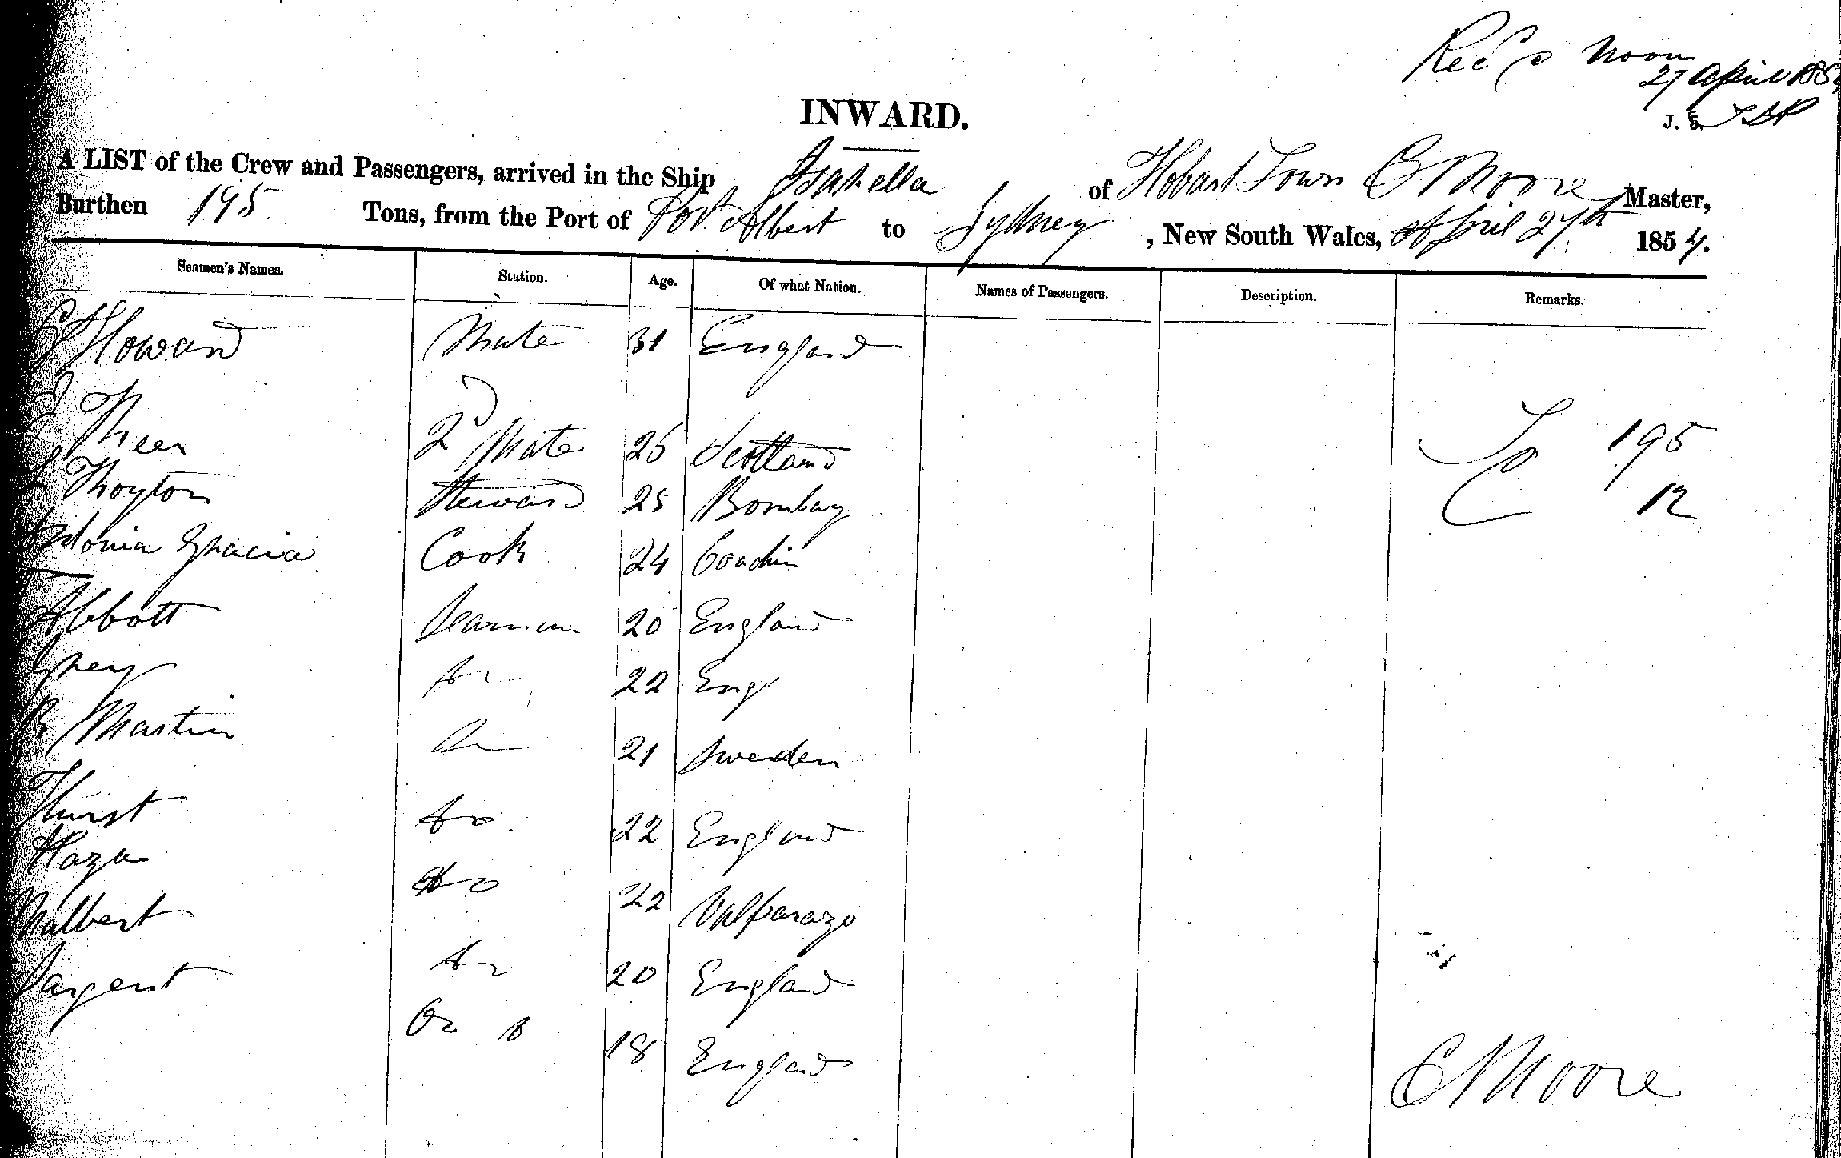 Recd noon
27 April 185
J. S.
INWARD.
A LIST of the Crew and Passengers, arrived in the Ship Isabella of Hobart Town C Moore Master,
Burthen 195 Tons, from the Port of Port Albert to Sydney, New South Wales, April 27th 1854.
Seamen's Names. Station. Age. Of what Nation. Names of Passengers. Description. Remarks.
Howard Mate 31 England
2d Mate 26 Scotland 195
Thoyton Steward 25 Bombay 12
Cook 24
Abbott Seaman 20 England
Grey Do 22 Eng
Martin Do 21 Sweden
Do 22 England
Do 22 Valparazo
Do 20 England
Sargent Do 18 England
C Moore